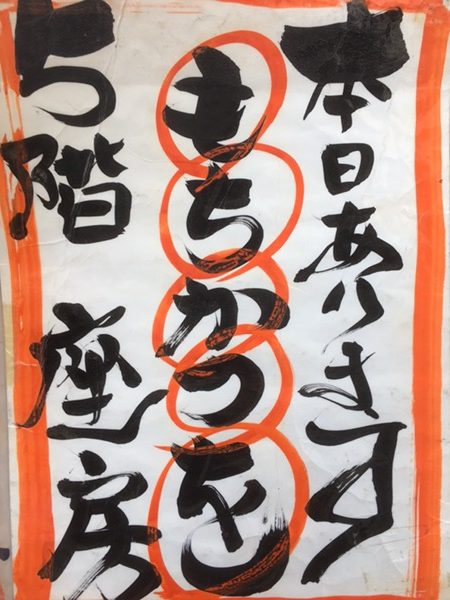 本日あります
もちかつを
5階 座房